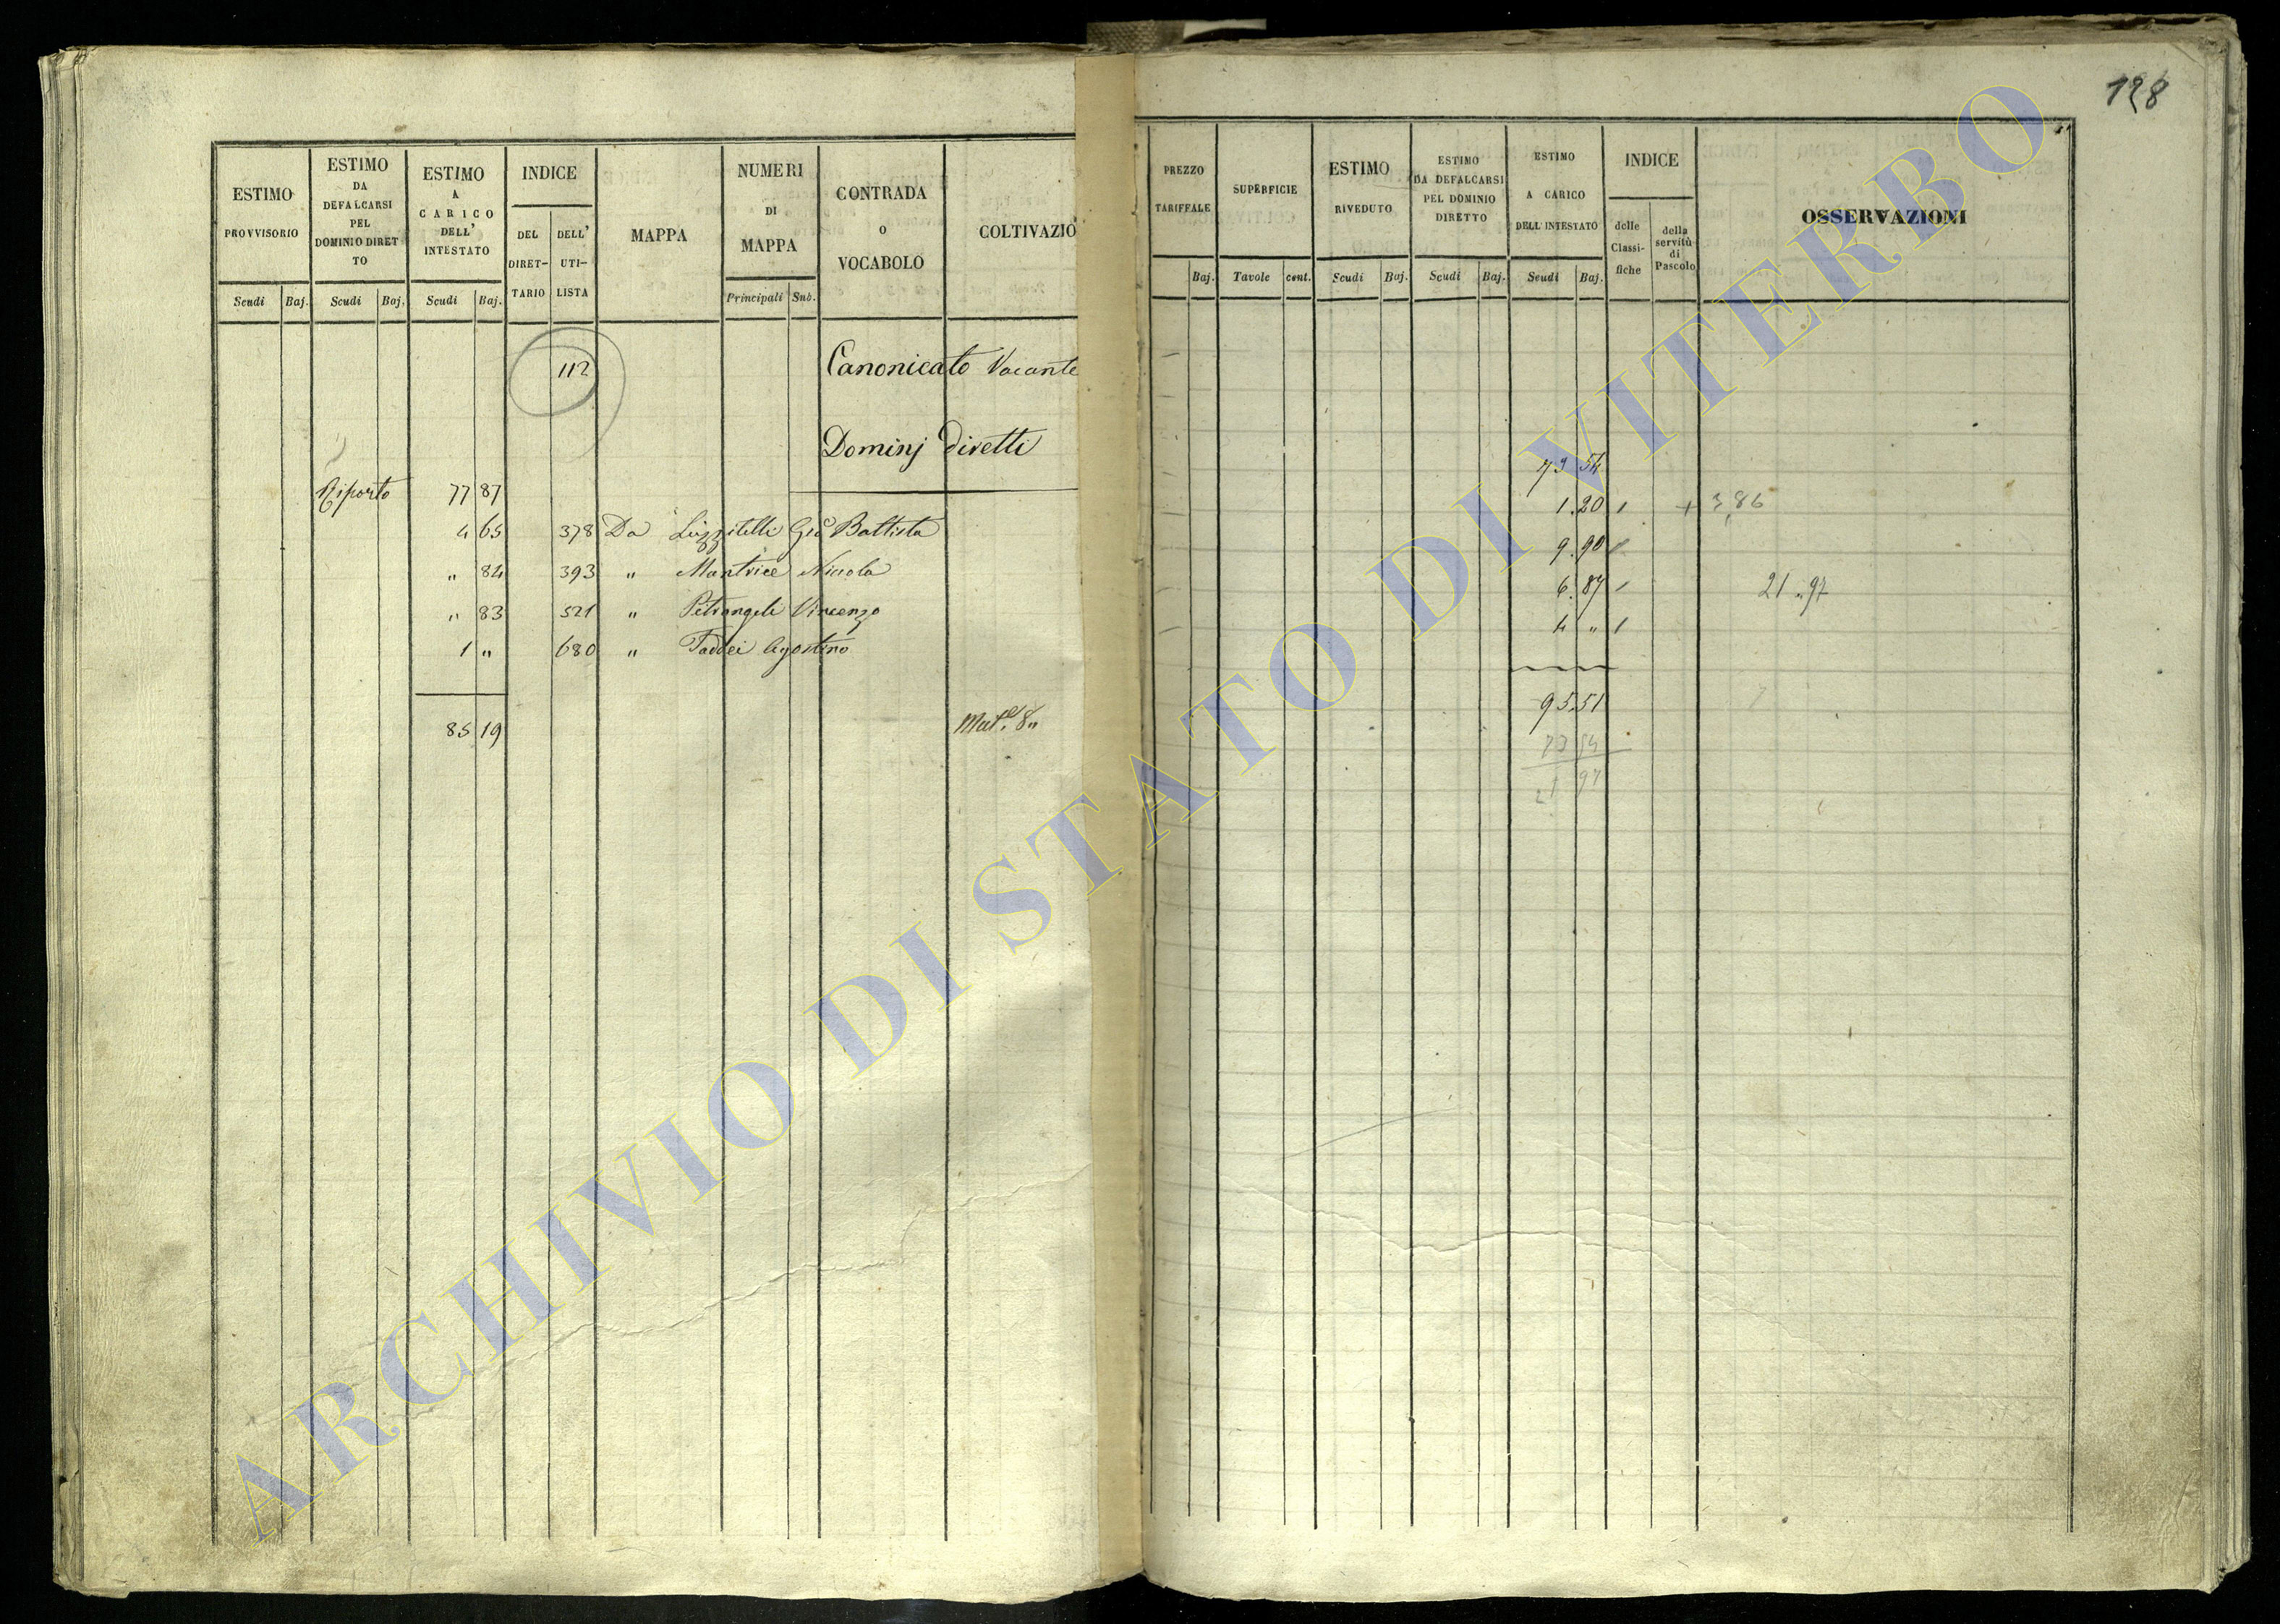 128
ESTIMO PROVVISORIO
Scudi Baj.
ESTIMO DA DEFALCARSI PEL DOMINIO DIRETTO
Scudi Baj.
ESTIMO A CARICO DELL' INTESTATO
Scudi Baj.
INDICE
DEL DIRET-TARIO
DELL' UTI-LISTA
MAPPA
NUMERI DI MAPPA
Principali Sub.
CONTRADA O VOCABOLO
COLTIVAZIO
112 Canonicato Vacante
Dominj diretti
Riporto 77 87
4 65 378 Da Luzzitelli Gio Battista
„ 84 393 „ Mantrice Niccola
„ 83 521 „ Petrangeli Vincenzo
1 „ 680 „ Taddei Agostino
85 19 Mat.e 8„
PREZZO TARIFFALE
Baj.
SUPERFICIE
Tavole cent.
ESTIMO RIVEDUTO
Scudi Baj.
ESTIMO DA DEFALCARSI PEL DOMINIO DIRETTO
Scudi Baj.
ESTIMO A CARICO DELL' INTESTATO
Scudi Baj.
INDICE
delle Classi-fiche
della servitù di Pascolo
OSSERVAZIONI
73 54
1.20 + 3,86
9.90
6.87 21.97
4 „
95.51
73 54
21 97
ARCHIVIO DI STATO DI VITERBO